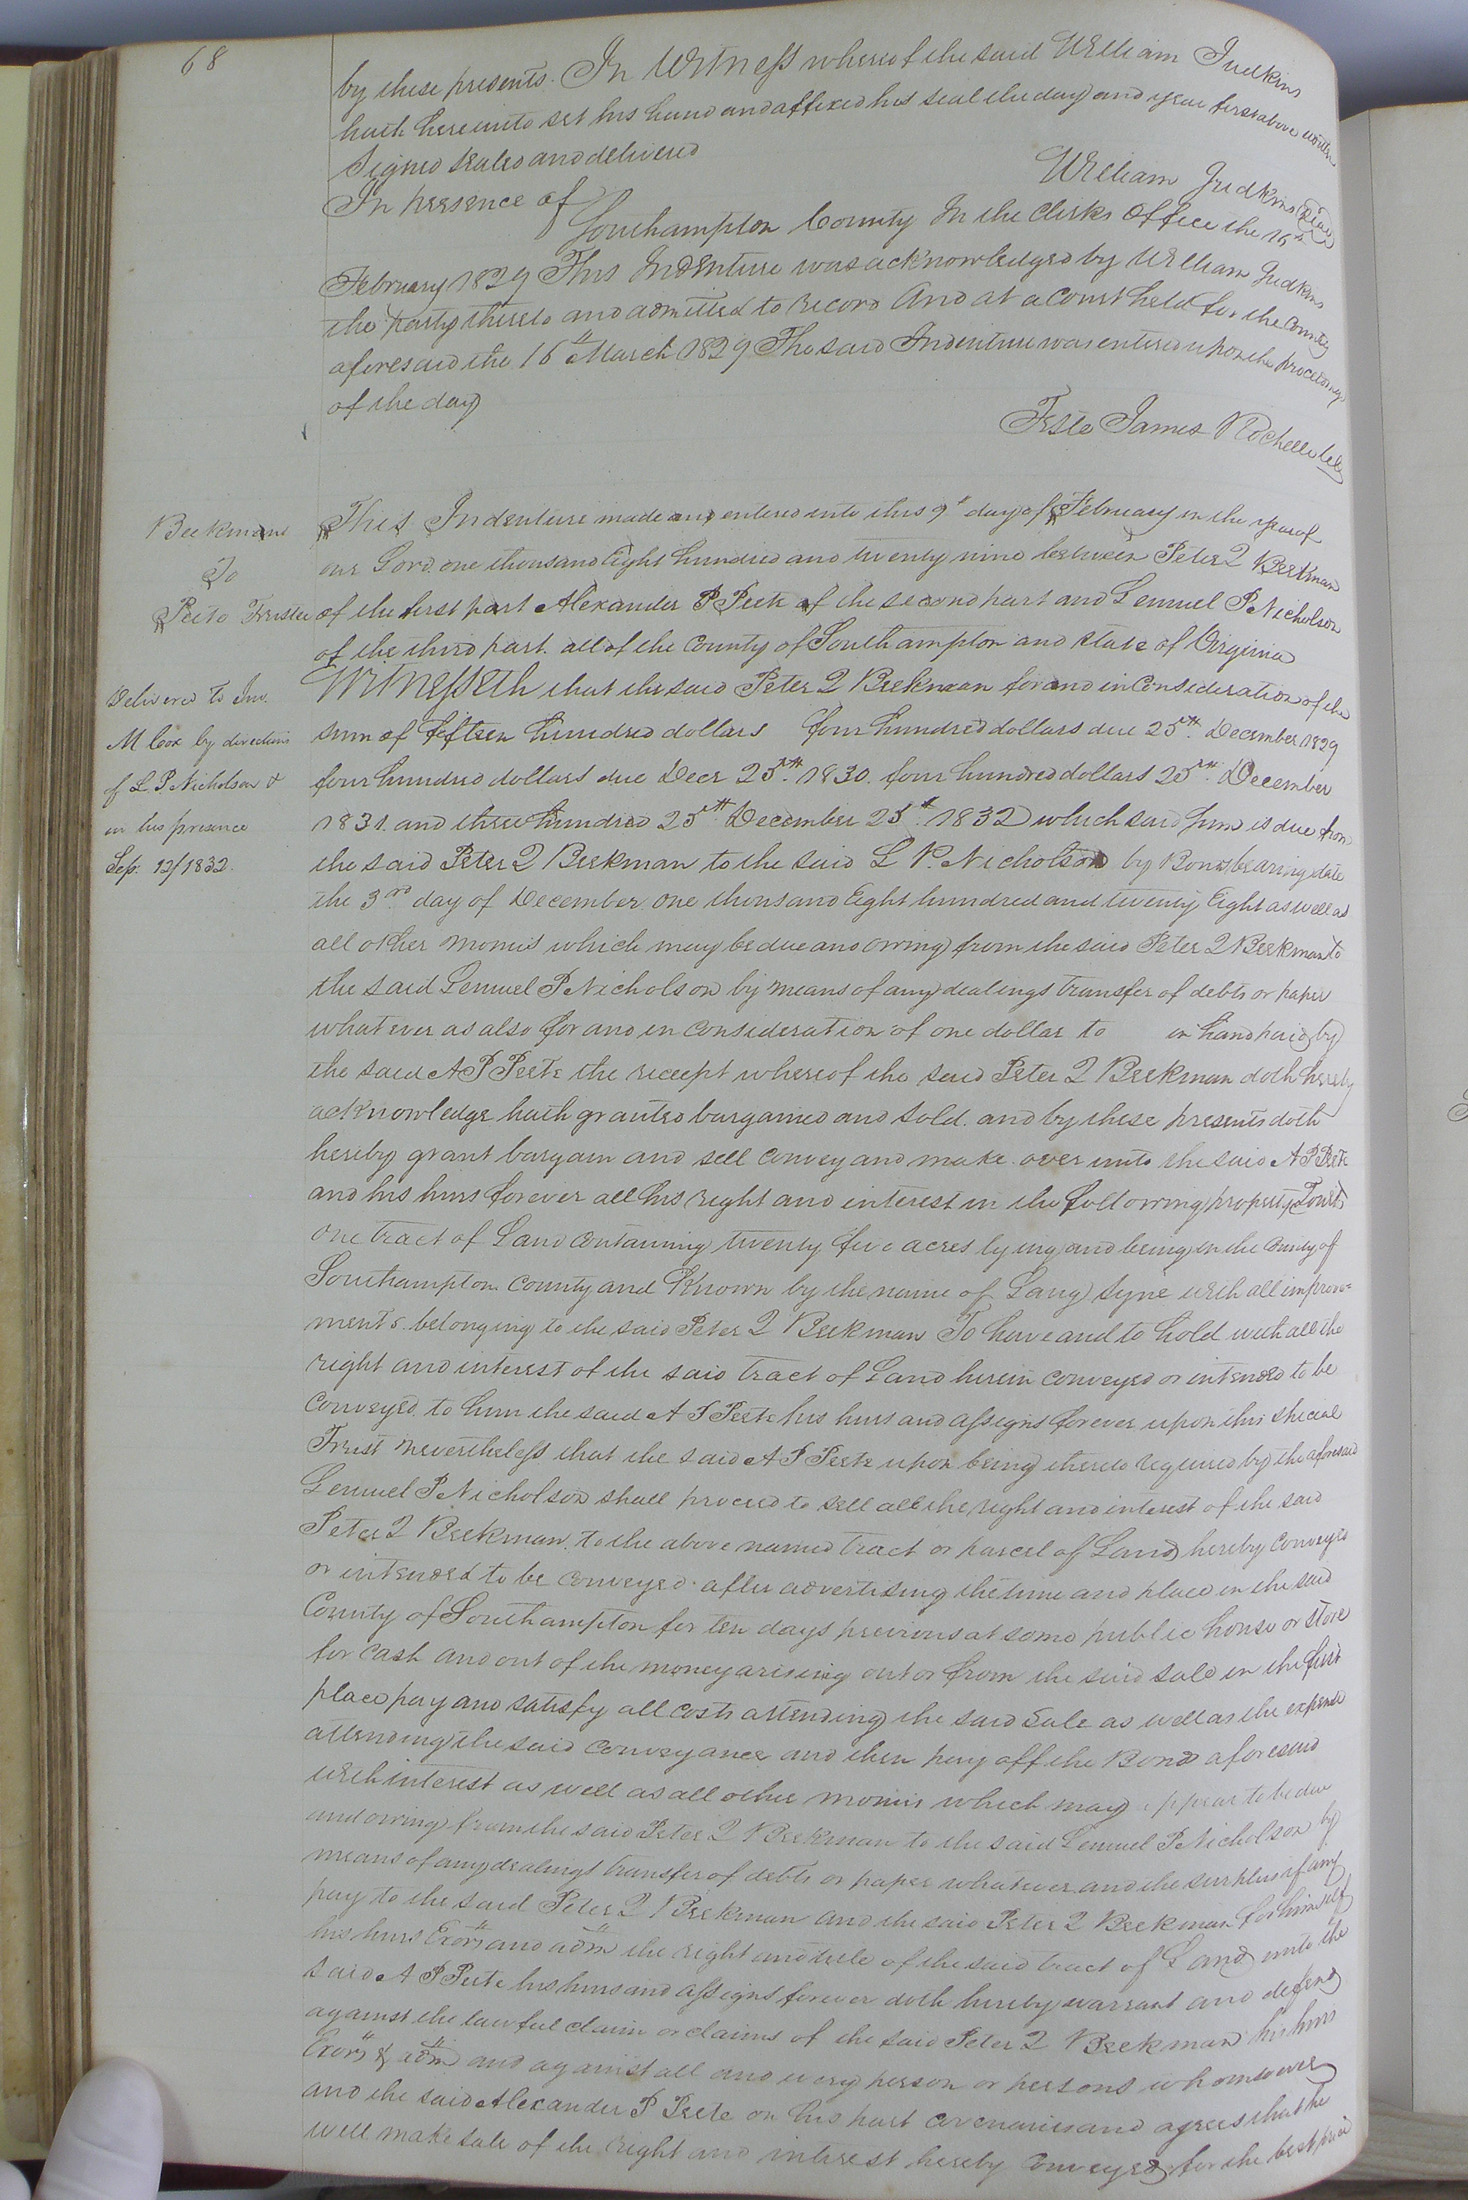 68
by these presents. In Witness whereof the said William Judkins
hath hereunto set his hand and affixed his seal the day and year first above written
Signed sealed and delivered
William Judkins (Seal)
In presence of
Southampton County In the Clerks Office the 16th
February 1829 This Indenture was acknowledged by William Judkins
the party thereto and admitted to record And at a Court held for the County
aforesaid the 16th March 1829 The said Indenture was entered upon the proceedings
of the day
Teste James Rochelle Clk
Beekman
To
Peete Trustee
Delivered to Jno.
M Cox by direction
of L P Nicholson &
in his presence
Sep: 12/1832.
This Indenture made and entered into this 9th day of February in the year of
our Lord one thousand Eight hundred and twenty nine between Peter Q Beekman
of the first part Alexander P Peete of the second part and Lemuel P Nicholson
of the third part. all of the County of Southampton and state of Virginia
Witnesseth that the said Peter Q Beekman for and in Consideration of the
sum of fifteen hundred dollars four hundred dollars due 25th December 1829
four hundred dollars due Decr 25th 1830. four hundred dollars 25th December
1831. and three hundred 25th December 25th 1832 which said sum is due from
the said Peter Q Beekman to the said L P. Nicholson by Bonds bearing date
the 3rd day of December one thousand Eight hundred and twenty Eight as well as
all other monies which may be due and owing from the said Peter Q Beekman to
the said Lemuel P Nicholson by means of any dealings transfer of debts or paper
whatever as also for and in consideration of one dollar to in hand paid by
the said A P Peete the receipt whereof the said Peter Q Beekman doth hereby
acknowledge hath granted bargained and sold. and by these presents doth
hereby grant bargain and sell convey and make over unto the said A P Peete
and his heirs forever all his right and interest in the following property Towit
one tract of Land containing twenty five acres lying and being in the County of
Southampton County and Known by the name of Lang Syne with all improve=
ments belonging to the said Peter Q Beekman To have and to hold with all the
right and interest of the said tract of Land herein conveyed or intended to be
conveyed to him the said A P Peete his heirs and assigns forever upon this special
Trust nevertheless that the said A P Peete upon being thereto required by the aforesaid
Lemuel P Nicholson shall proceed to sell all the right and interest of the said
Peter Q Beekman to the above named tract or parcel of Land hereby Conveyed
or intended to be conveyed after advertising the time and place in the said
County of Southampton for ten days previous at some public house or store
for cash and out of the money arising out or from the said sale in the first
place pay and satisfy all costs attending the said Sale as well as the expense
attending the said conveyance and then pay off the Bonds aforesaid
with interest as well as all other monies which may appear to be due
and owing from the said Peter Q Beekman to the said Lemuel P Nicholson by
means of any dealings transfer of debts or paper whatever and the surplus if any
pay to the said Peter Q Beekman and the said Peter Q Beekman for himself
his heirs Exors and adm the right and title of the said tract of Land unto the
said A P Peete his heirs and assigns forever doth hereby warrant and defend
against the lawful claim or claims of the said Peter Q Beekman his heirs
Exors & adm and against all and every person or persons whomsoever
and the said Alexander P Peete on his part covenants and agrees that he
will make sale of the right and interest hereby conveyed for the best price